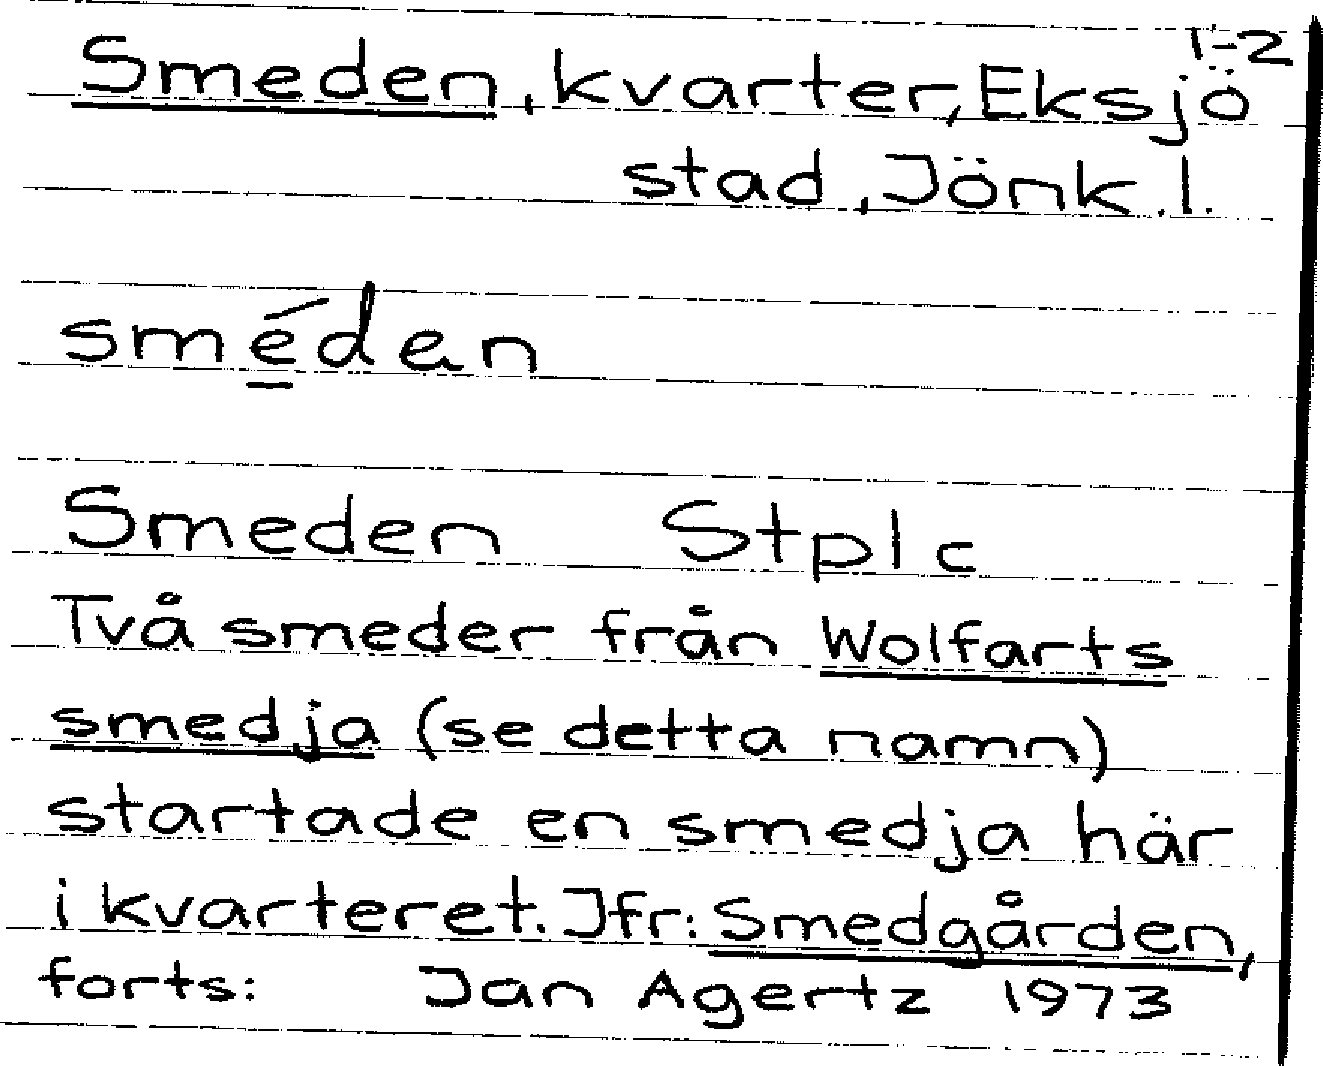 1-2
Smeden, kvarter, Eksjö
stad, Jönk.l.
sméden
Smeden Stplc
Två smeder från Wolfarts
smedja (se detta namn)
startade en smedja här
i kvarteret. Jfr: Smedgården,
forts: Jan Agertz 1973